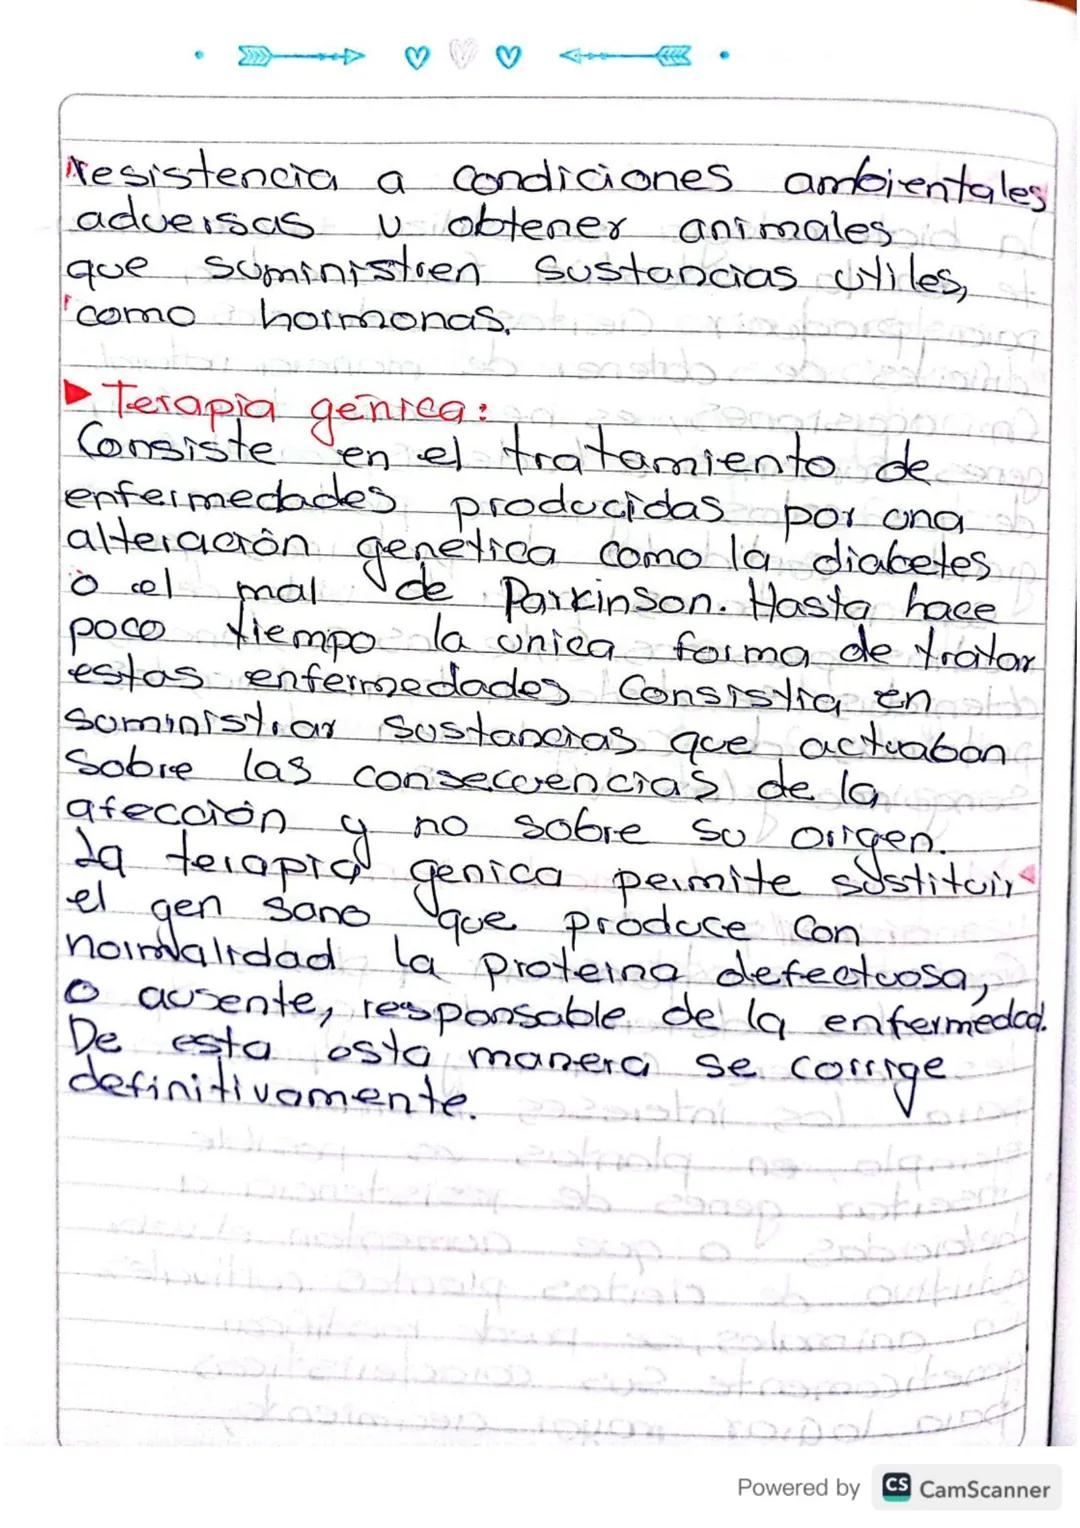 resistencia a condiciones ambientales
adversas u obtener animales
que suministren sustancias utiles,
como hormonas.
▶ Terapia génica:
Consiste en el tratamiento de
enfermedades producidas por una
alteración genética como la diabetes
o el mal de Parkinson. Hasta hace
poco tiempo la unica forma de tratar
estas enfermedades consistia en
suministrar sustancias que actuaban
sobre las consecuencias de la
afección y no sobre su origen.
La terapia genica permite sustituir
el gen sano que produce con
normalidad la proteina defectuosa,
o ausente, responsable de la enfermedad.
De esta osta manera se corrige
definitivamente.
Powered by CS CamScanner